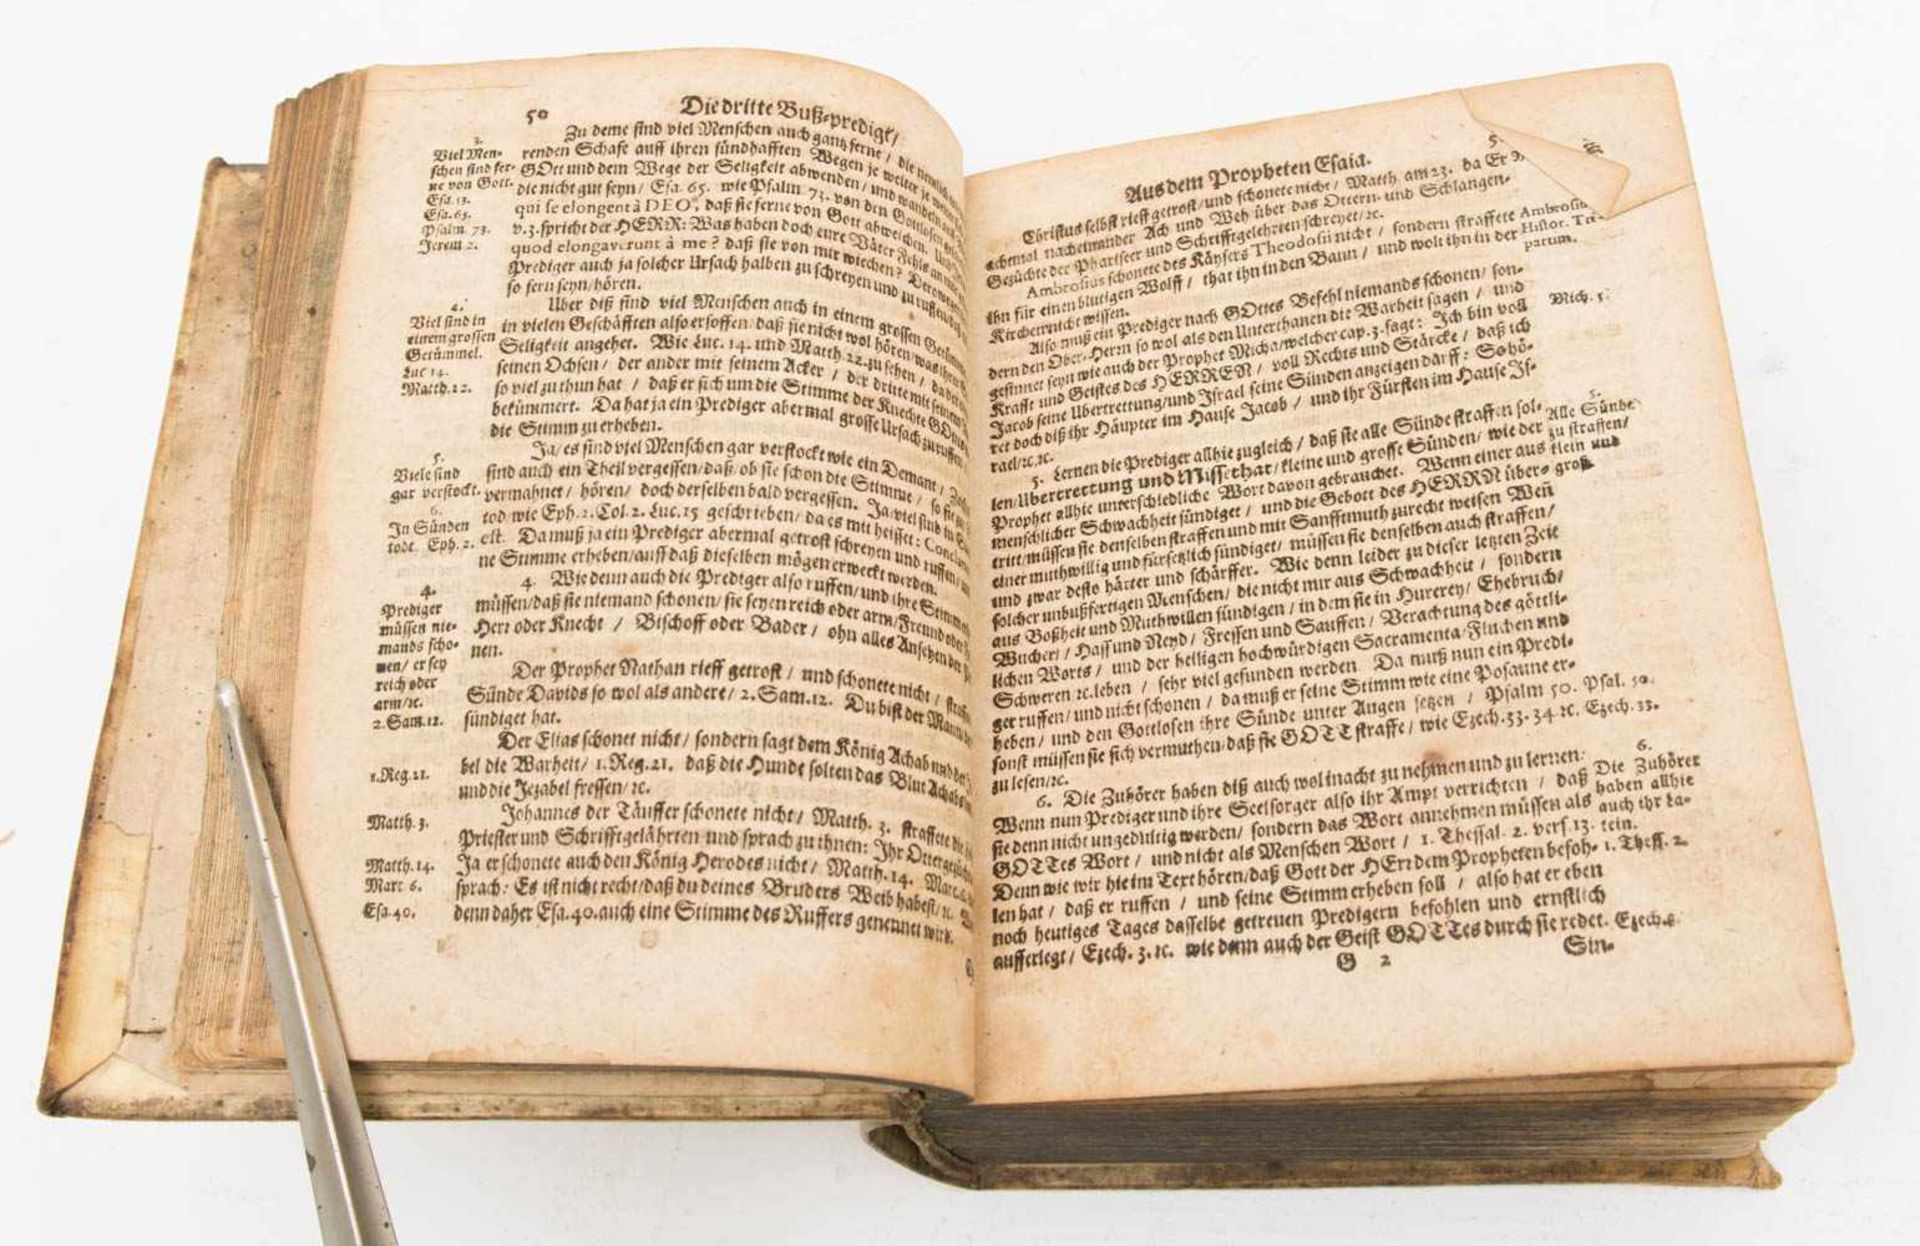 50 Die dritte Buß-predigt/
Zu deme sind viel Menschen auch gantz ferne/ die
renden Schafe auff ihren sündhafften Wegen je weiter je
GOtt und dem Wege der Seligkeit abwenden/ und wandeln
die nicht gut seyn/ Esa. 65. wie Psalm 73. von den Gottlosen
qui se elongent à DEO, daß sie ferne von Gott abweichen.
v. 3. spricht der HERR: Was haben doch eure Väter Fehls an
quod elongaverunt à me? daß sie von mir wiechen?
Prediger auch ja solcher Ursach halben zu schreyen und zu ruffen/
so fern seyn/ hören.
Uber diß sind viel Menschen auch in einem grossen
in vielen Geschäfften also ersoffen/ daß sie nicht wol hören/ was ihrer
Seligkeit angehet. Wie Luc. 14. und Matth. 22. zu sehen/
seinen Ochsen/ der ander mit seinem Acker/ der dritte mit seinem
so viel zu thun hat/ daß er sich um die Stimme der Knechte
bekümmert. Da hat ja ein Prediger abermal grosse Ursach zu ruffen
die Stimm zu erheben.
Ja/ es sind viel Menschen gar verstockt wie ein Demant/
sind auch ein Theil vergessen/ daß/ ob sie schon die Stimme/ so sie
vermahnet/ hören/ doch derselben bald vergessen. Ja/ viel sind in
tod/ wie Eph. 2. Col. 2. Luc. 15 geschrieben/ da es mit heisset:
est. Da muß ja ein Prediger abermal getrost schreyen und ruffen/
ne Stimme erheben/ auff daß dieselben mögen erweckt werden.
4. Wie denn auch die Prediger also ruffen/ und ihre Stimme
müssen/ daß sie niemand schonen/ sie seyen reich oder arm/ Freund oder
Herr oder Knecht/ Bischoff oder Bader/ ohn alles Ansehen der
nen.
Der Prophet Nathan rieff getrost/ und schonete nicht/
Sünde Davids so wol als andere/ 2. Sam. 12. Du bist der Mann
sündiget hat.
Der Elias schonet nicht/ sondern sagt dem König Achab und der
bel die Warheit/ 1. Reg. 21. daß die Hunde solten das Blut Achabs
und die Jezabel fressen/ ꝛc.
Johannes der Täuffer schonete nicht/ Matth. 3. straffete die
Priester und Schrifftgelährten und sprach zu ihnen: Ihr Ottergezüchte
Ja er schonete auch den König Herodes nicht/ Matth. 14. Marc. 6.
sprach: Es ist nicht recht/ daß du deines Bruders Weib habest/ ꝛc.
denn daher Esa. 40. auch eine Stimme des Ruffers genennet wird.
3.
Viel Men-
schen sind fer-
ne von Gott.
Esa. 13.
Esa. 65.
Psalm. 73.
Jerem 2.
4.
Viel sind in
einem grossen
Getümmel.
Luc 14.
Matth. 22.
5.
Viele sind
gar verstockt.
6.
In Sünden
todt. Eph. 2.
4.
Prediger
müssen nie-
mands scho-
nen/ er sey
reich oder
arm/ ꝛc.
2. Sam. 12.
1. Reg. 21.
Matth. 3.
Matth. 14.
Marc 6.
Esa. 40.
Aus dem Propheten Esaia.
Christus selbst rieff getrost/ und schonete nicht/ Matth am 23. da Er
achtmal nacheinander Ach und Weh über das Ottern- und Schlangen-
Gezüchte der Phariseer und Schrifftgelehrten schreyet/ ꝛc.
Ambrosius schonete des Käysers Theodosii nicht/ sondern straffete
ihn für einen blutigen Wolff/ that ihn in den Bann/ und wolt ihn in der
Kirchen nicht wissen.
Also muß ein Prediger nach GOttes Befehl niemands schonen/ son-
dern den Ober-Herrn so wol als den Unterthanen die Warheit sagen/ und
gesinnet seyn wie auch der Prophet Micha/ welcher cap. 3. sagt: Ich bin voll
Krafft und Geistes des HERREN/ voll Rechts und Stärcke/ daß ich
Jacob seine Ubertrettung/ und Israel seine Sünden anzeigen darff: So hö-
ret doch diß ihr Häupter im Hause Jacob/ und ihr Fürsten im Hause Is-
rael/ ꝛc. ꝛc.
5. Lernen die Prediger allhie zugleich/ daß sie alle Sünde straffen sol-
len/ Ubertrettung und Missethat/ kleine und grosse Sünden/ wie der
Prophet allhie unterschiedliche Wort davon gebrauchet. Wenn einer aus
menschlicher Schwachheit sündiget/ und die Gebott des HERRN über-
tritt/ müssen sie denselben straffen und mit Sanfftmuth zurecht weisen Wen̄
einer muthwillig und fürsetzlich sündiget/ müssen sie denselben auch straffen/
und zwar desto härter und schärffer. Wie denn leider zu dieser letzten Zeit
solcher unbußfertigen Menschen/ die nicht nur aus Schwachheit/ sondern
aus Boßheit und Muthwillen sündigen/ in dem sie in Hurerey/ Ehebruch/
Wucher/ Haß und Neyd/ Fressen und Sauffen/ Verachtung des göttli-
lichen Worts/ und der heiligen hochwürdigen Sacramenta/ Fluchen und
Schweren ꝛc. leben/ sehr viel gefunden werden. Da muß nun ein Predi-
ger ruffen/ und nicht schonen/ da muß er seine Stimm wie eine Posaune er-
heben/ und den Gottlosen ihre Sünde unter Augen setzen/ Psalm 50.
sonst müssen sie sich vermuthen/ daß sie GOTT straffe/ wie Ezech. 33. 34 ꝛc.
zu lesen/ ꝛc.
6. Die Zuhörer haben diß auch wol in acht zu nehmen und zu lernen:
Wenn nun Prediger und ihre Seelsorger also ihr Ampt verrichten/ daß
sie denn nicht ungedültig werden/ sondern das Wort annehmen müssen als
GOTTes Wort/ und nicht als Menschen Wort/ 1. Thessal. 2. vers. 13.
Denn wie wir hie im Text hören/ daß Gott der HErr dem Propheten befoh-
len hat/ daß er ruffen/ und seine Stimm erheben soll/ also hat er eben
noch heutiges Tages dasselbe getreuen Predigern befohlen und ernstlich
aufferlegt/ Ezech. 3. ꝛc. wie denn auch der Geist GOTTes durch sie redet.
G 2 Sin-
Histor. Tri-
parum.
Mich. 3.
5.
Alle Sünde
zu straffen/
klein und
groß
Psal. 50.
Ezech. 33.
6.
Die Zuhörer
haben allhie
auch ihr La-
tein.
1. Thess. 2